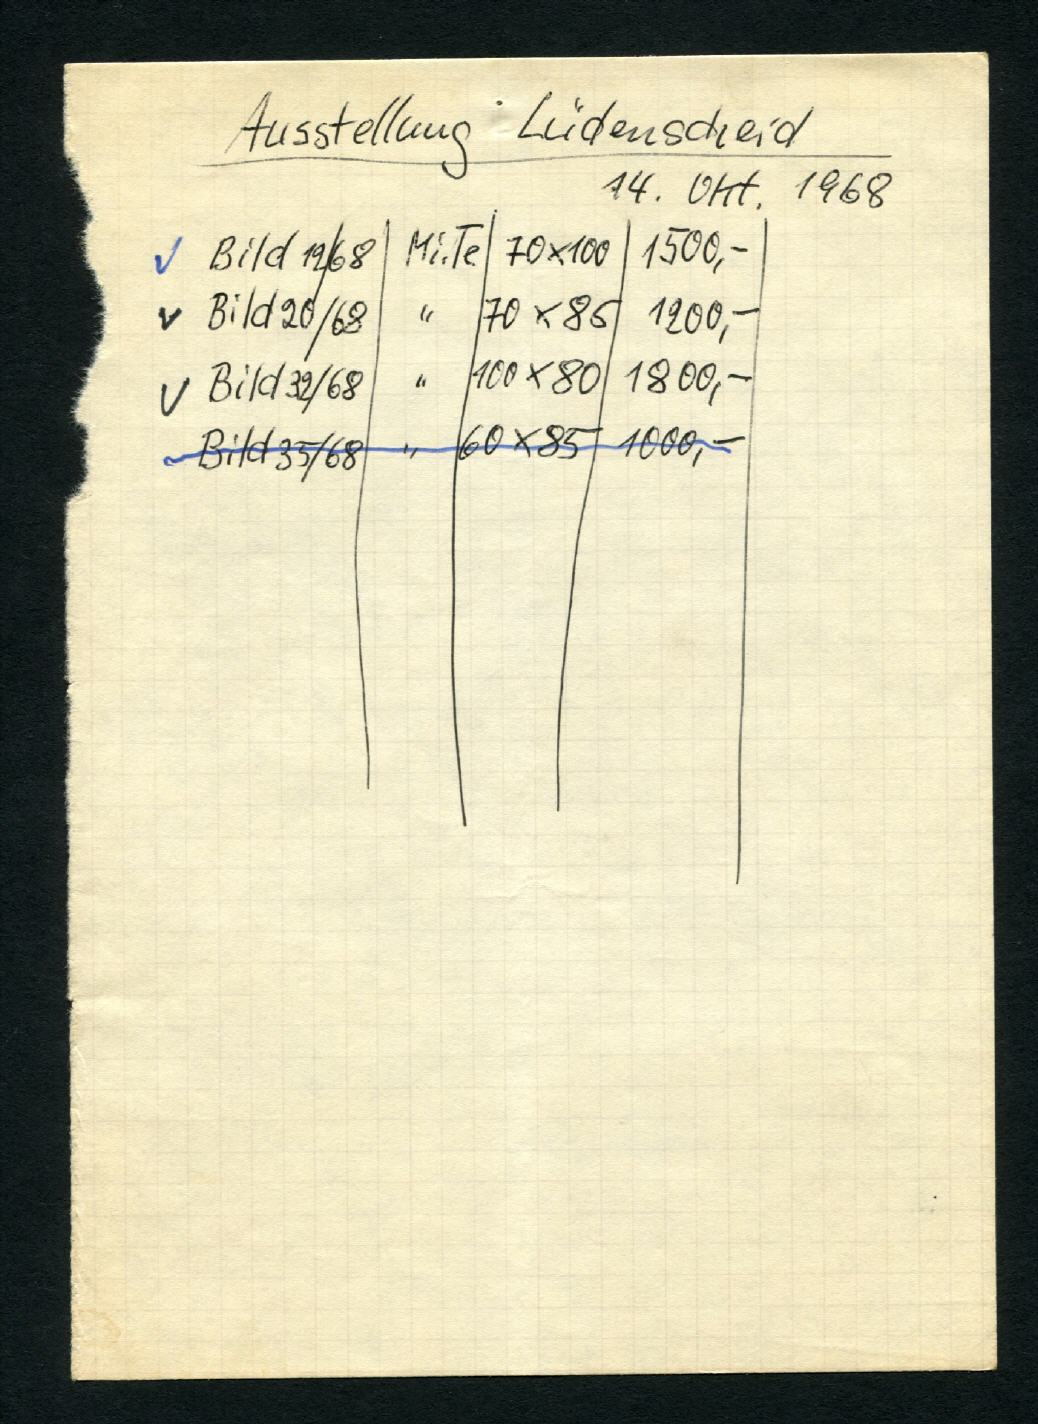 Ausstellung Lüdenscheid
14. Okt. 1968
✓ Bild 19/68 Mi.Te 70x100 1500,-
✓ Bild 20/68 " 70x85 1200,-
✓ Bild 32/68 " 100x80 1800,-
Bild 35/68 " 60x85 1000,-